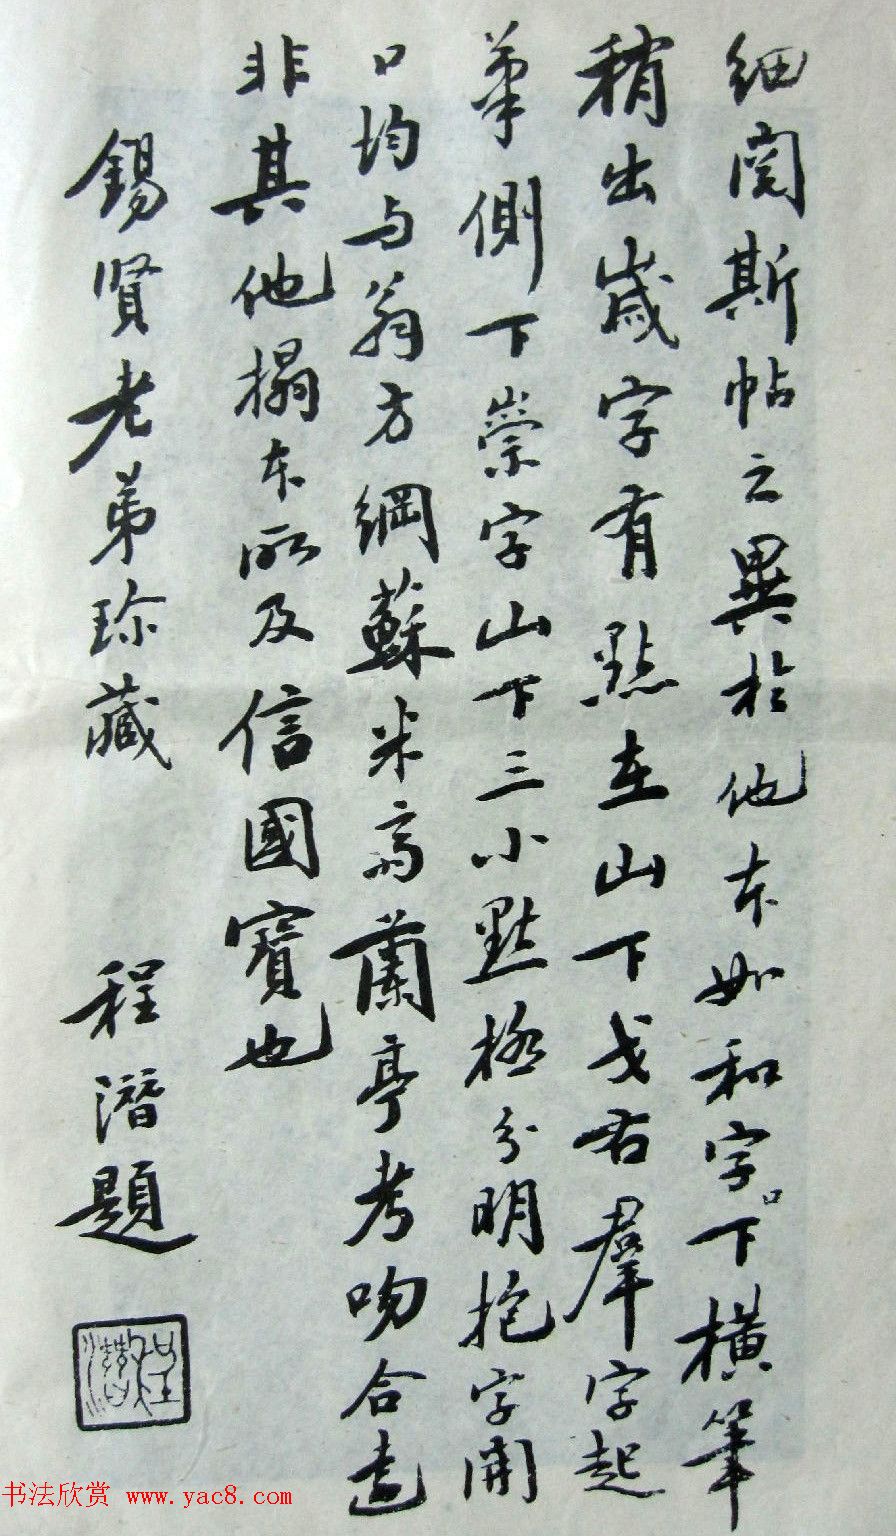 細閱斯帖之異於他本如和字口下橫筆
稍出崴字有點在山下戈右羣字起
筆側下崇字山下三小點極分明抱字開
口均與翁方綱蘇米齋蘭亭考吻合遠
非其他搨本所及信國寶也
錫賢老弟珍藏
程潛題
程潛
书法欣赏 www.yac8.com